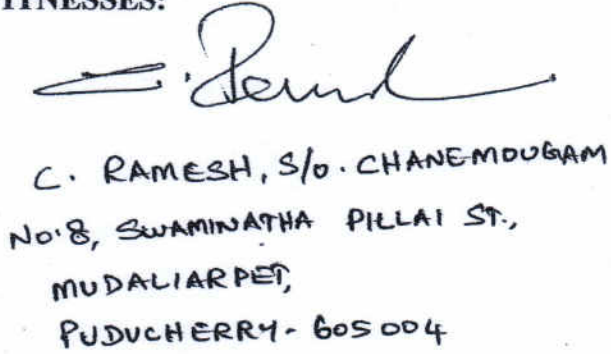 WITNESSES:
C. RAMESH, S/o. CHANEMOUGAM
No.8, SWAMINATHA PILLAI ST.,
MUDALIARPET,
PUDUCHERRY - 605 004